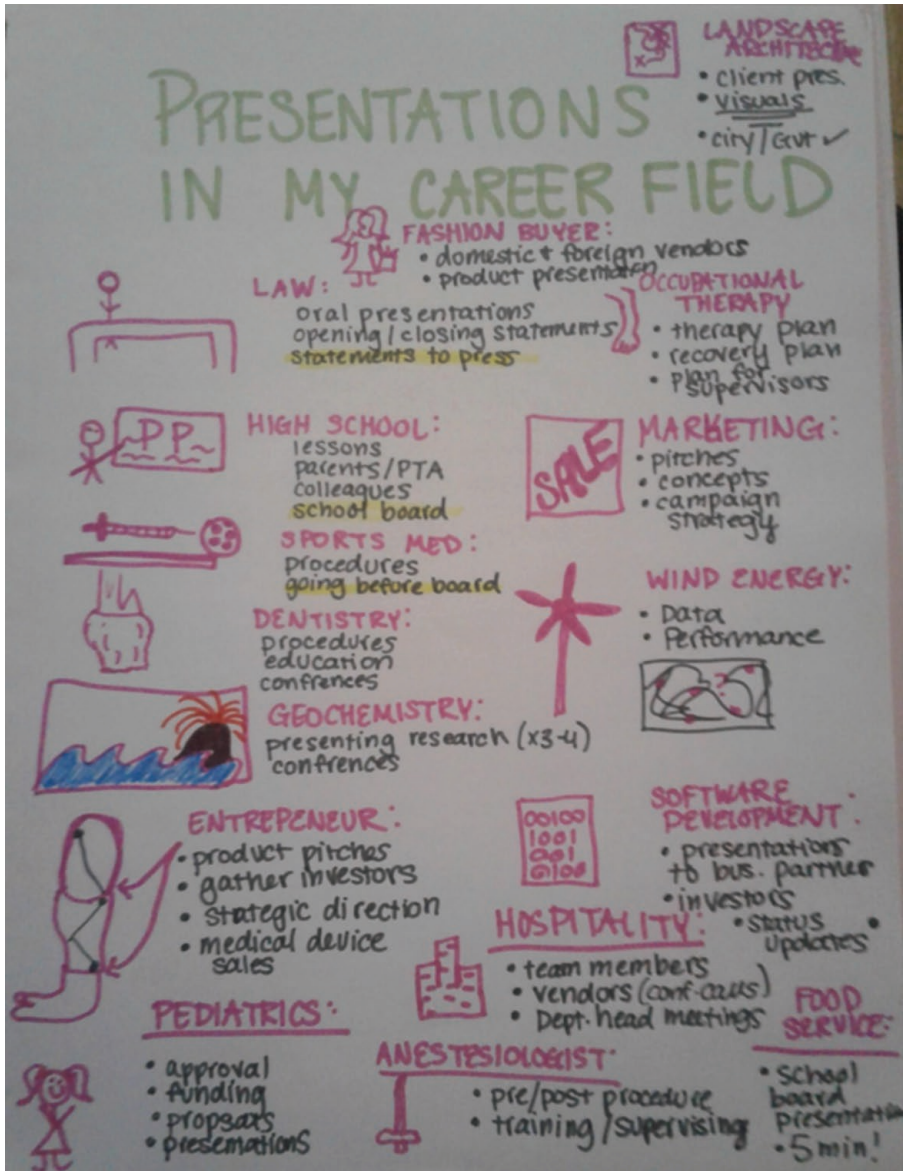 LANDSCAPE
ARCHITECTURE
• client pres.
• visuals
• city/Gvt ✓
PRESENTATIONS
IN MY CAREER FIELD
FASHION BUYER:
• domestic + foreign vendors
• product presentation
LAW:
oral presentations
opening/closing statements
statements to press
OCCUPATIONAL
THERAPY
• therapy plan
• recovery plan
• plan for
supervisors
PP
HIGH SCHOOL:
lessons
parents/PTA
colleagues
school board
SALE
MARKETING:
• pitches
• concepts
• campaign
strategy
SPORTS MED:
procedures
going before board
WIND ENERGY:
• Data
• Performance
DENTISTRY:
procedures
education
confrences
GEOCHEMISTRY:
presenting research (x3-4)
confrences
ENTREPENEUR:
• product pitches
• gather investors
• stategic direction
• medical device
sales
00100
1001
001
0100
SOFTWARE
DEVELOPMENT:
• presentations
to bus. partner
• investors
• status
updates
HOSPITALITY:
• team members
• vendors (conf-calls)
• Dept. head meetings
PEDIATRICS:
• approval
• funding
• propsals
• presentations
ANESTESIOLOGIST:
• pre/post procedure
• training/supervising
FOOD
SERVICE:
• school
board
presentation
• 5 min!